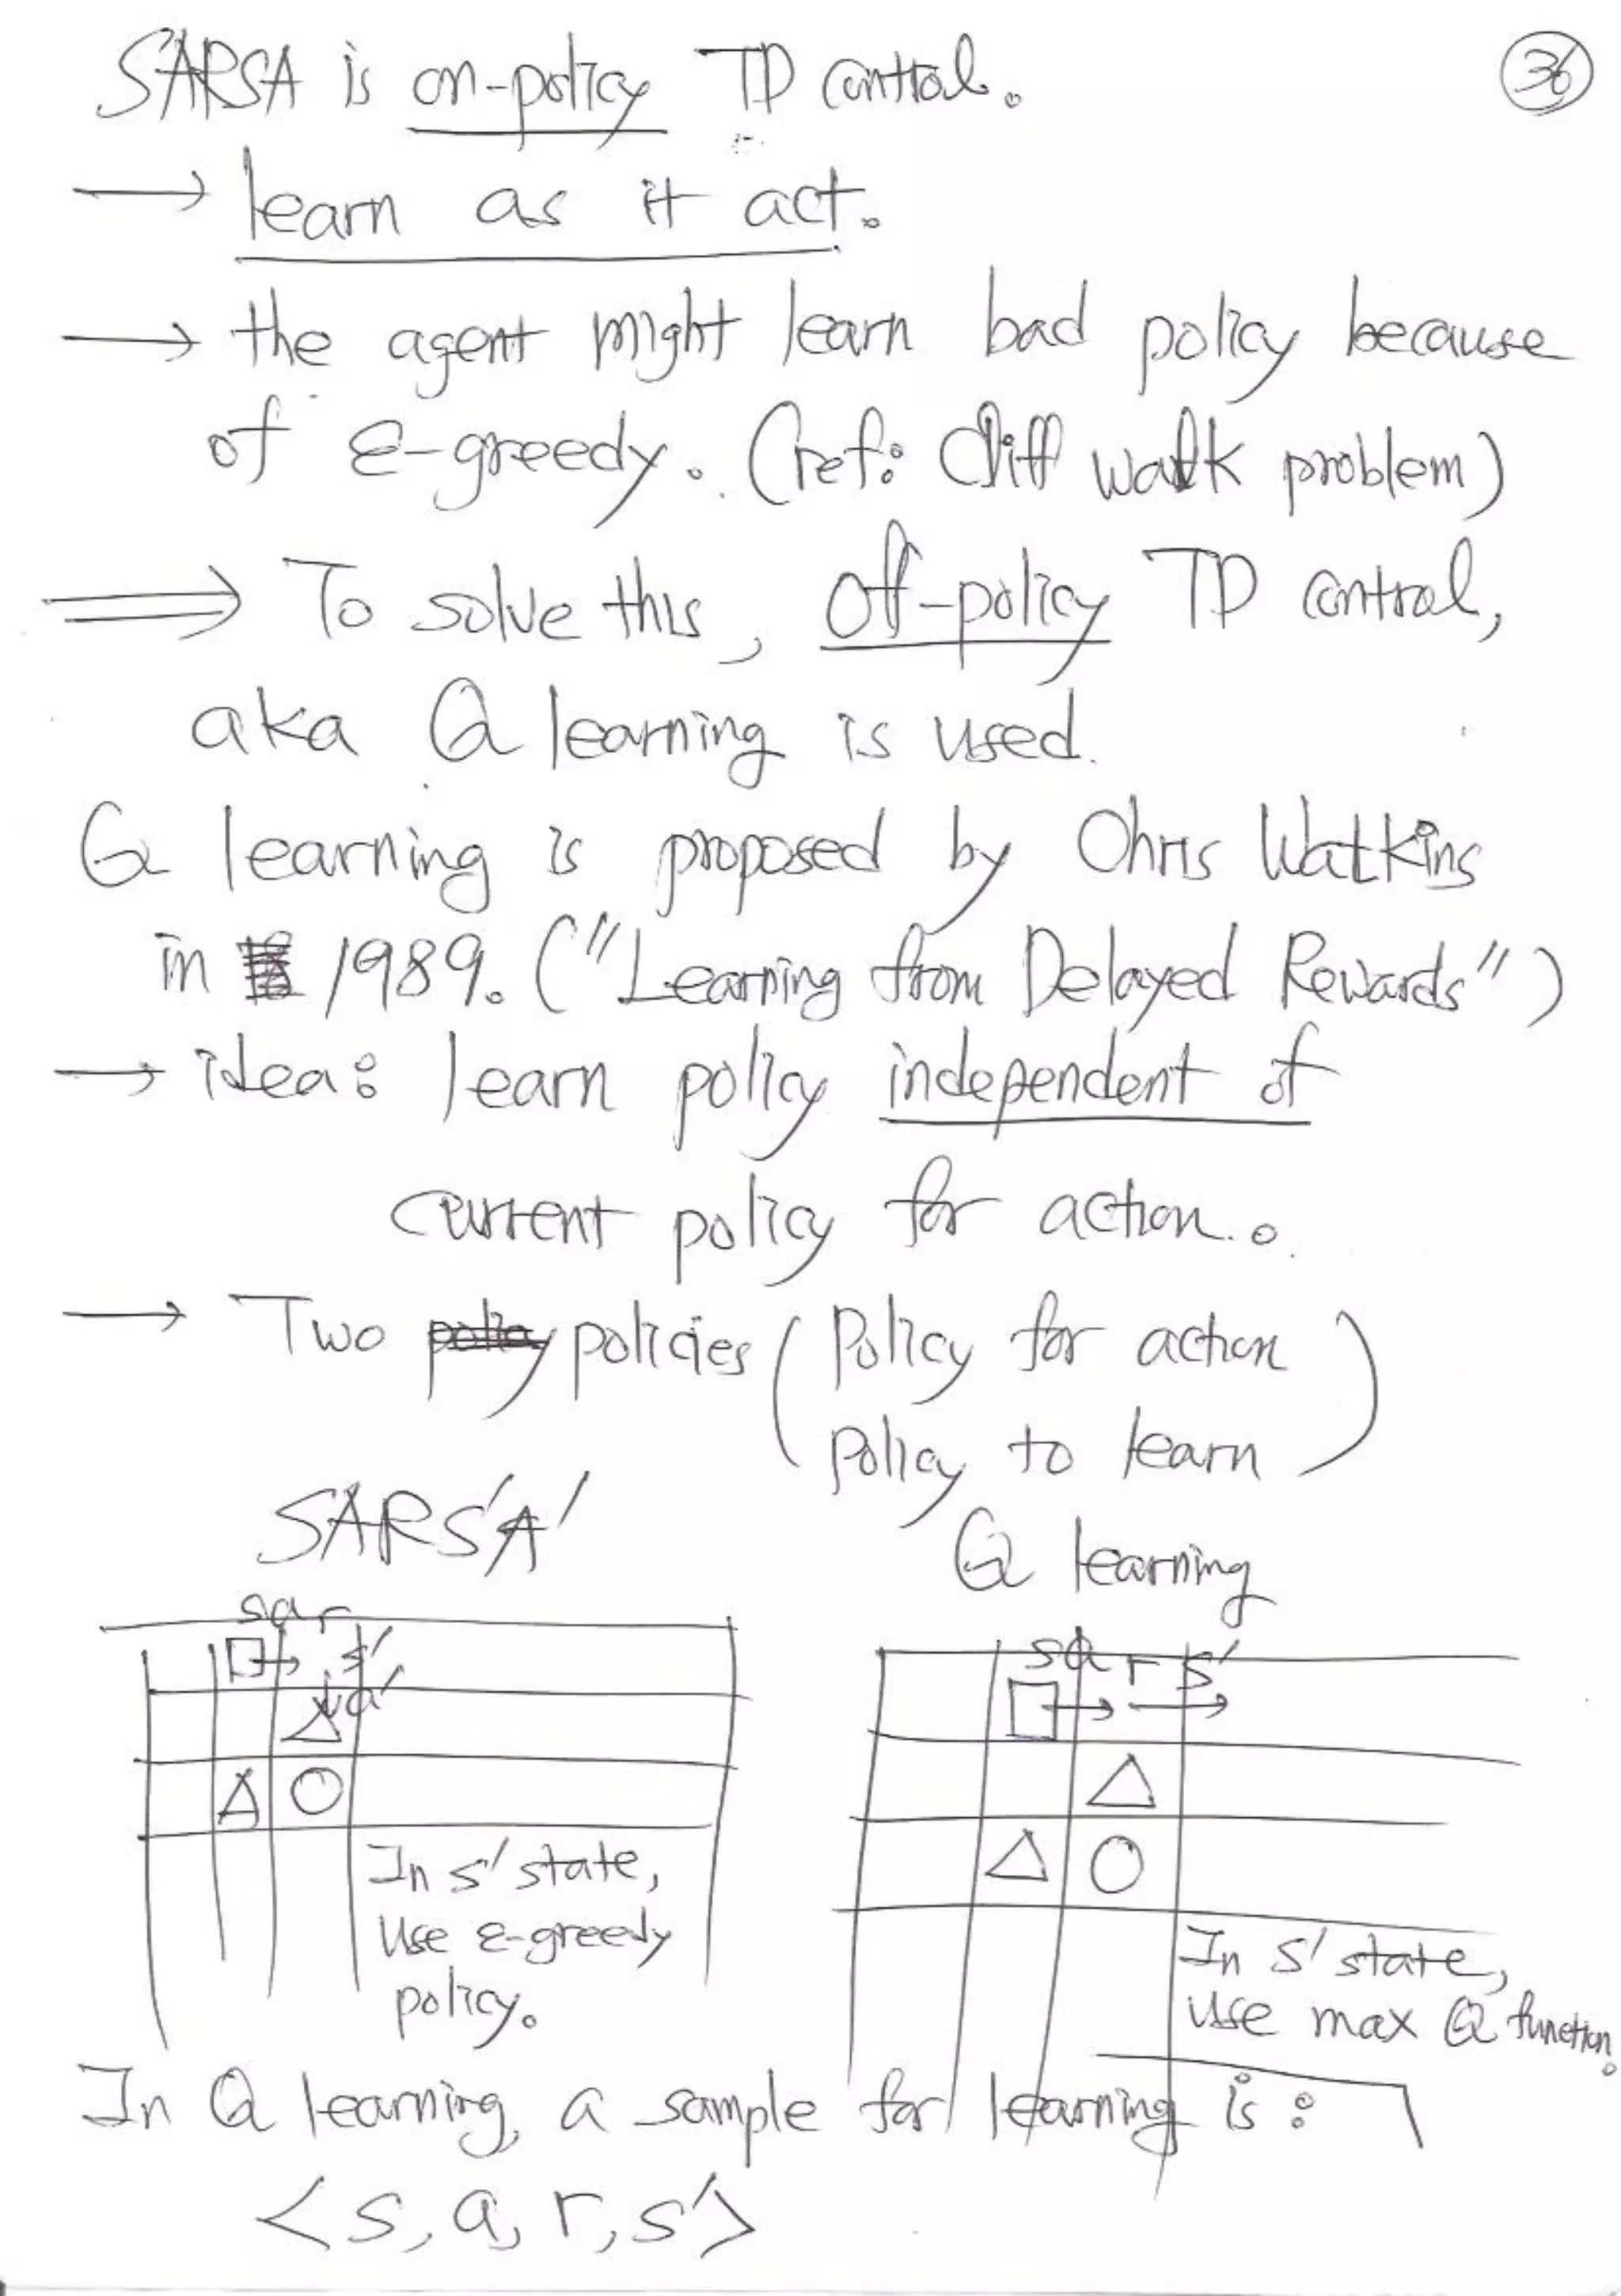 SARSA is on-policy TD control.
36
→ learn as it act.
→ the agent might learn bad policy because
of ε-greedy. (ref: Cliff walk problem)
⇒ To solve this, off-policy TD control,
aka Q learning is used.
Q learning is proposed by Chris Watkins
in 1989. ("Learning from Delayed Rewards")
→ idea: learn policy independent of
current policy for action.
→ Two policies ( Policy for action
policy to learn )
SARS'A'
Q learning
s a r
s'
a'
In s' state,
use ε-greedy
policy.
s a r s'
In s' state,
use max Q function.
In Q learning, a sample for learning is:
<s, a, r, s'>